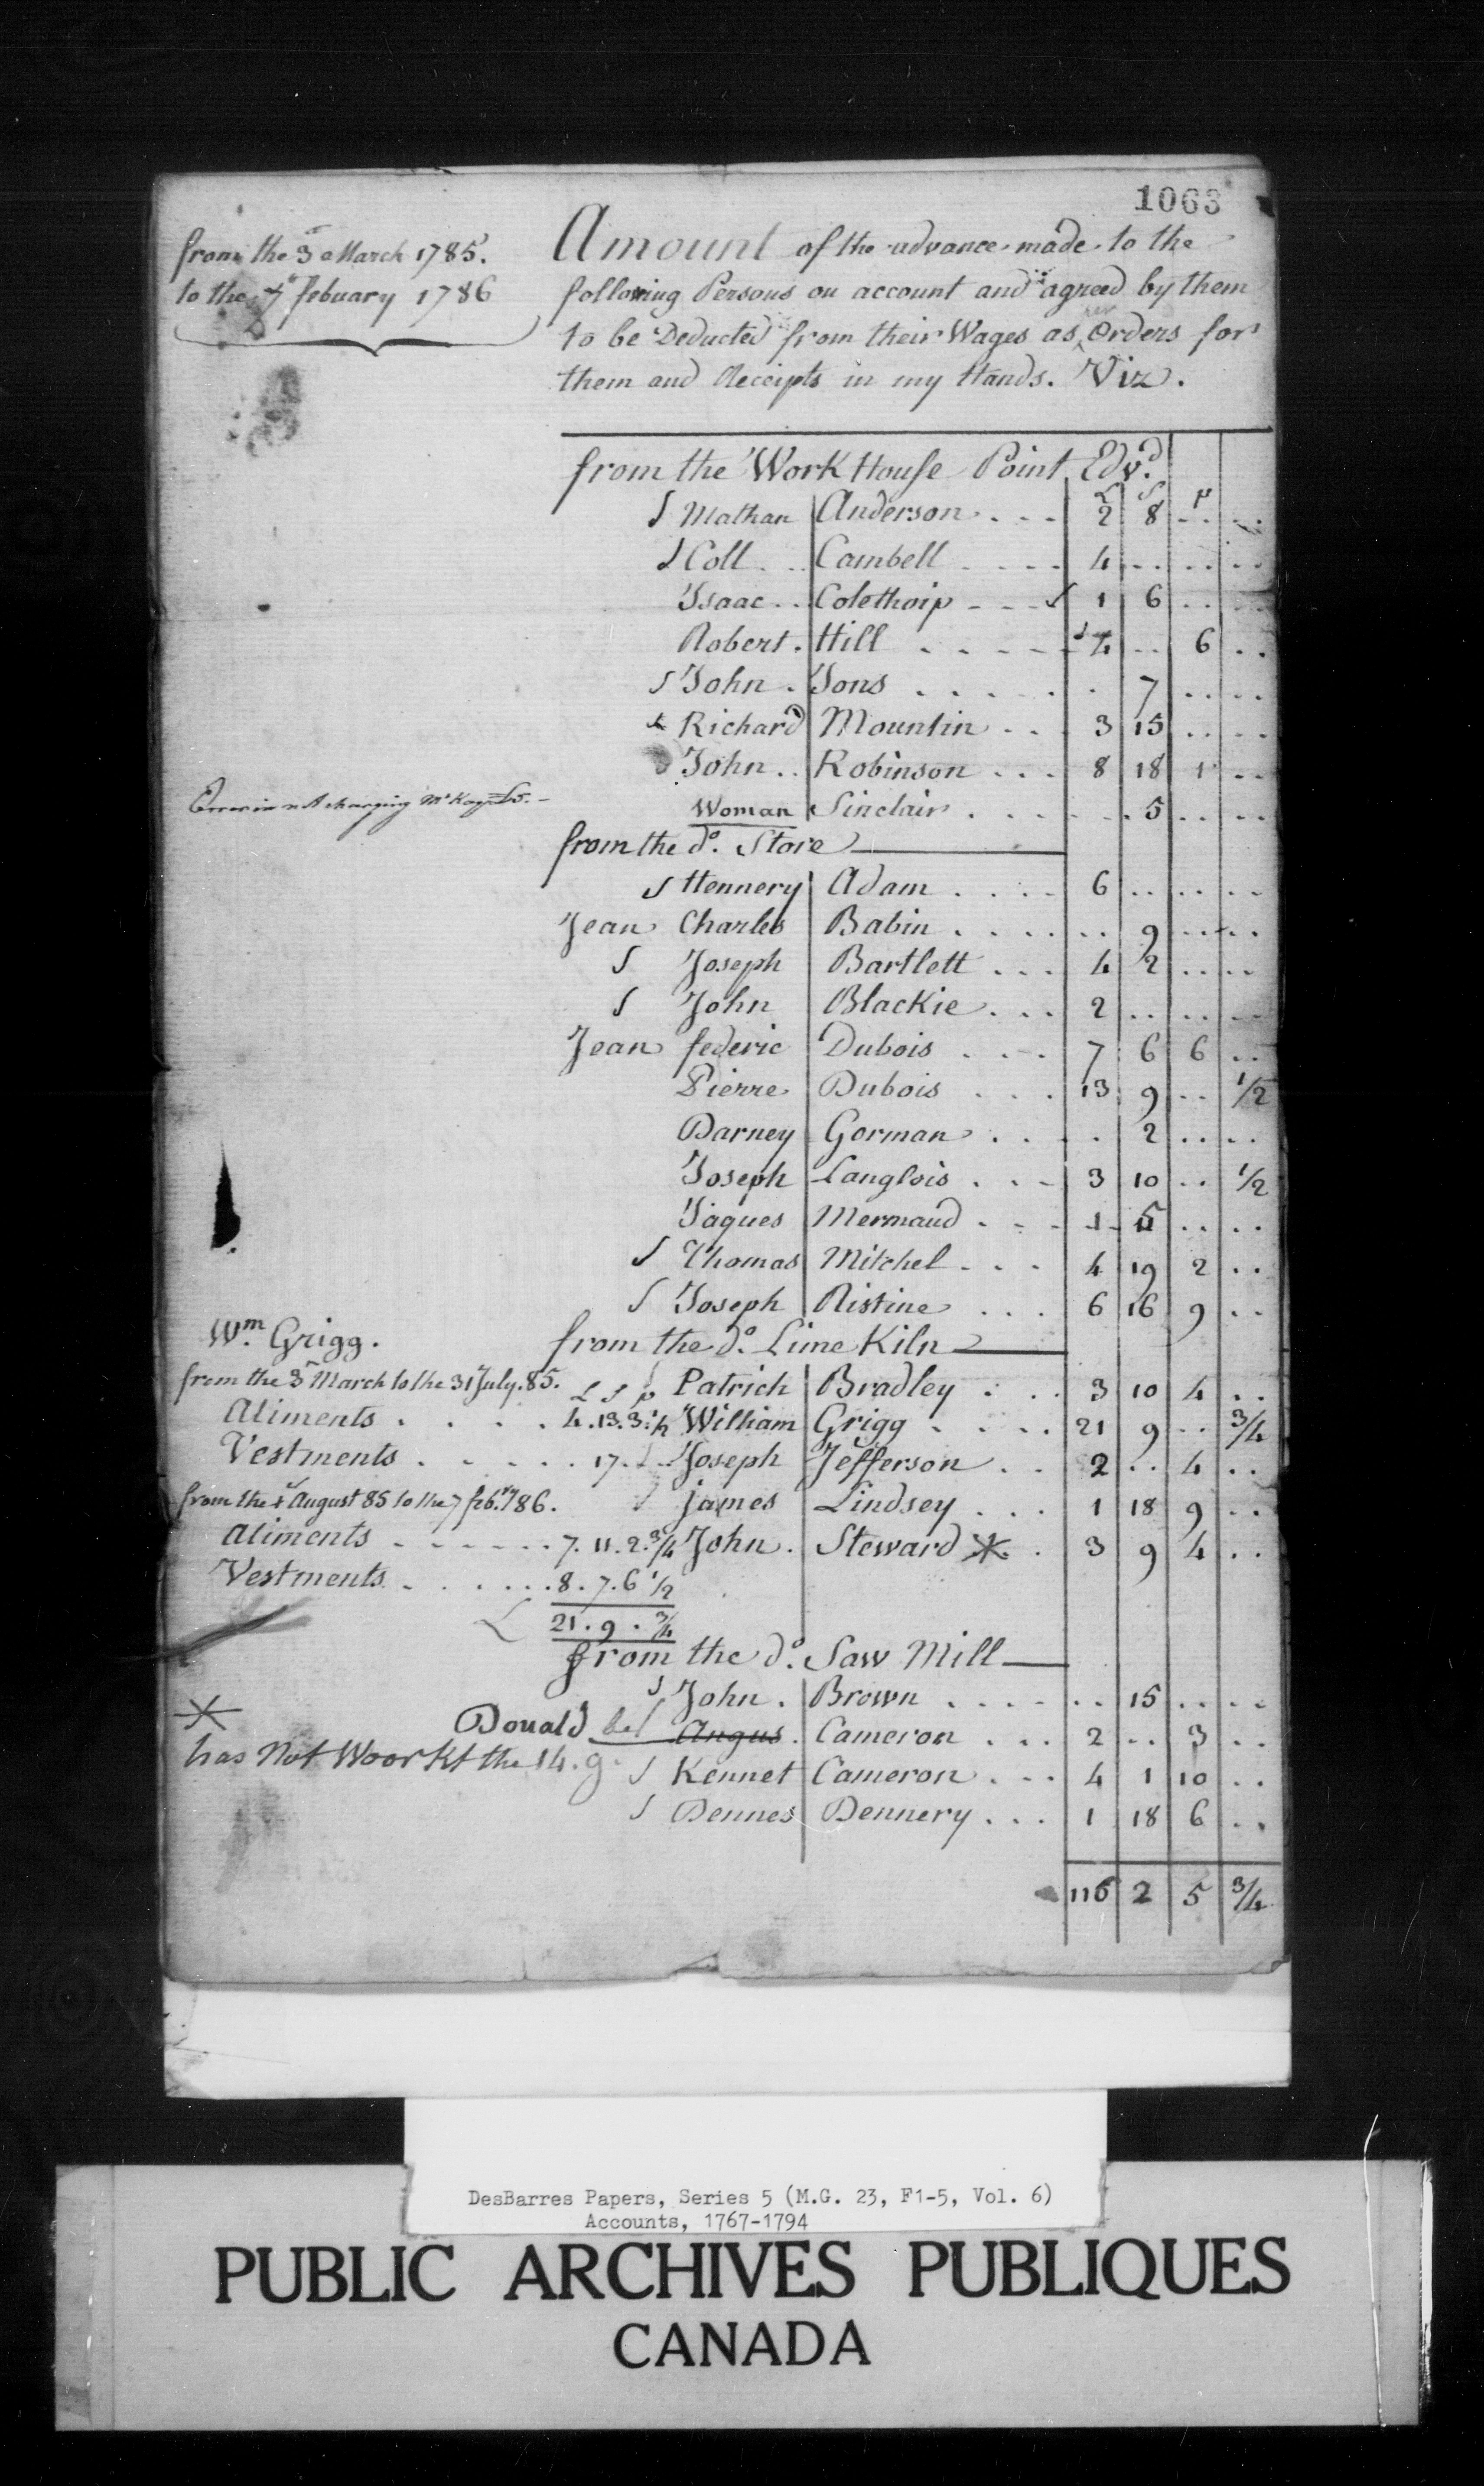 1063
from the 3d March 1785.
to the 7 febuary 1786
Amount of the advance made to the
following Persons on account and agreed by them
to be Deducted from their Wages as per Orders for
them and Receipts in my Hands. Viz.
from the Work House Point Edvd.
£ S P
Mathan Anderson . . . 2 8 .. ..
Coll . . Cambell . . . . 4 .. .. ..
Isaac . . Colethoip - - - 1 6 .. ..
Robert . Hill . . . . . 4 .. 6 ..
John . Jons . . . . . . 7 .. ..
Richard Mountin . . . 3 15 .. ..
John . . Robinson . . . 8 18 1 ..
charging McKay £5. -
Woman Sinclair . . . . . 5 .. ..
from the do. Store
Hennery Adam . . . . 6 .. .. ..
Jean Charles Babin . . . . .. 9 .. ..
Joseph Bartlett . . . 4 2 .. ..
John Blackie . . . 2 .. .. ..
Jean federic Dubois . . . 7 6 6 ..
Pierre Dubois . . . 13 9 .. 1/2
Barney Gorman . . . . 2 .. ..
Joseph Langlois . . . 3 10 .. 1/2
Jaques Mermaud . . . 1 5 .. ..
Thomas Mitchel . . . 4 19 2 ..
Joseph Ristine . . . 6 16 9 ..
Wm. Grigg.
from the do. Lime Kiln
from the 3d March to the 31 July. 85. £ S p Patrich Bradley . . . 3 10 4 ..
Aliments . . . . . 4.13.3.1/2 William Grigg . . . . 21 9 .. 3/4
Vestments . . . . . 17. . . Joseph Jefferson . . 2 .. 4 ..
from the 1 August 85 to the 7 feb.ry 786. James Lindsey . . . 1 18 9 ..
Aliments - - - - - - 7. 11. 2. 3/4 John . Steward * . 3 9 4 ..
Vestments . . . . . . 8. 7. 6 1/2
£ 21. 9. 3/4
from the do. Saw Mill
John . Brown . . . . .. 15 .. ..
*
Donald Angus . Cameron . . . 2 .. 3 ..
has Not Woorkt the 14. g.
Kennet Cameron . . . 4 1 10 ..
Dennes Dennery . . . 1 18 6 ..
116 2 5 3/4
DesBarres Papers, Series 5 (M.G. 23, F1-5, Vol. 6)
Accounts, 1767-1794
PUBLIC ARCHIVES PUBLIQUES
CANADA